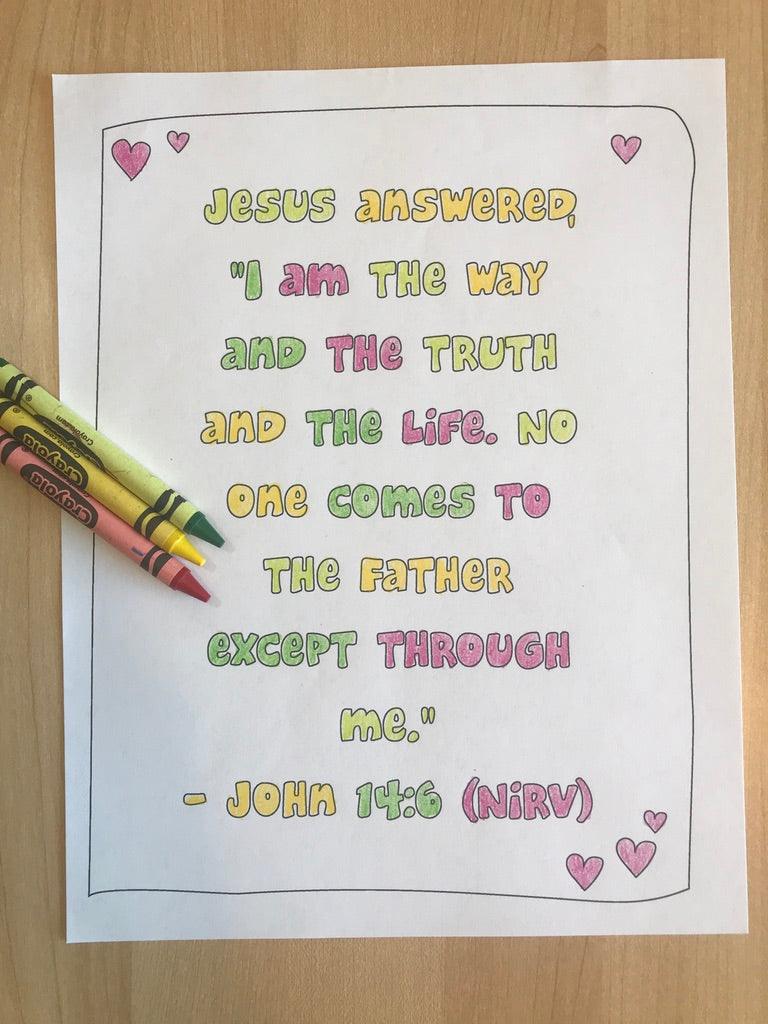 Jesus answered,
"I am the way
and the truth
and the life. No
one comes to
the Father
except through
me."
- John 14:6 (NIRV)
Crayola
Crayola
Crayola